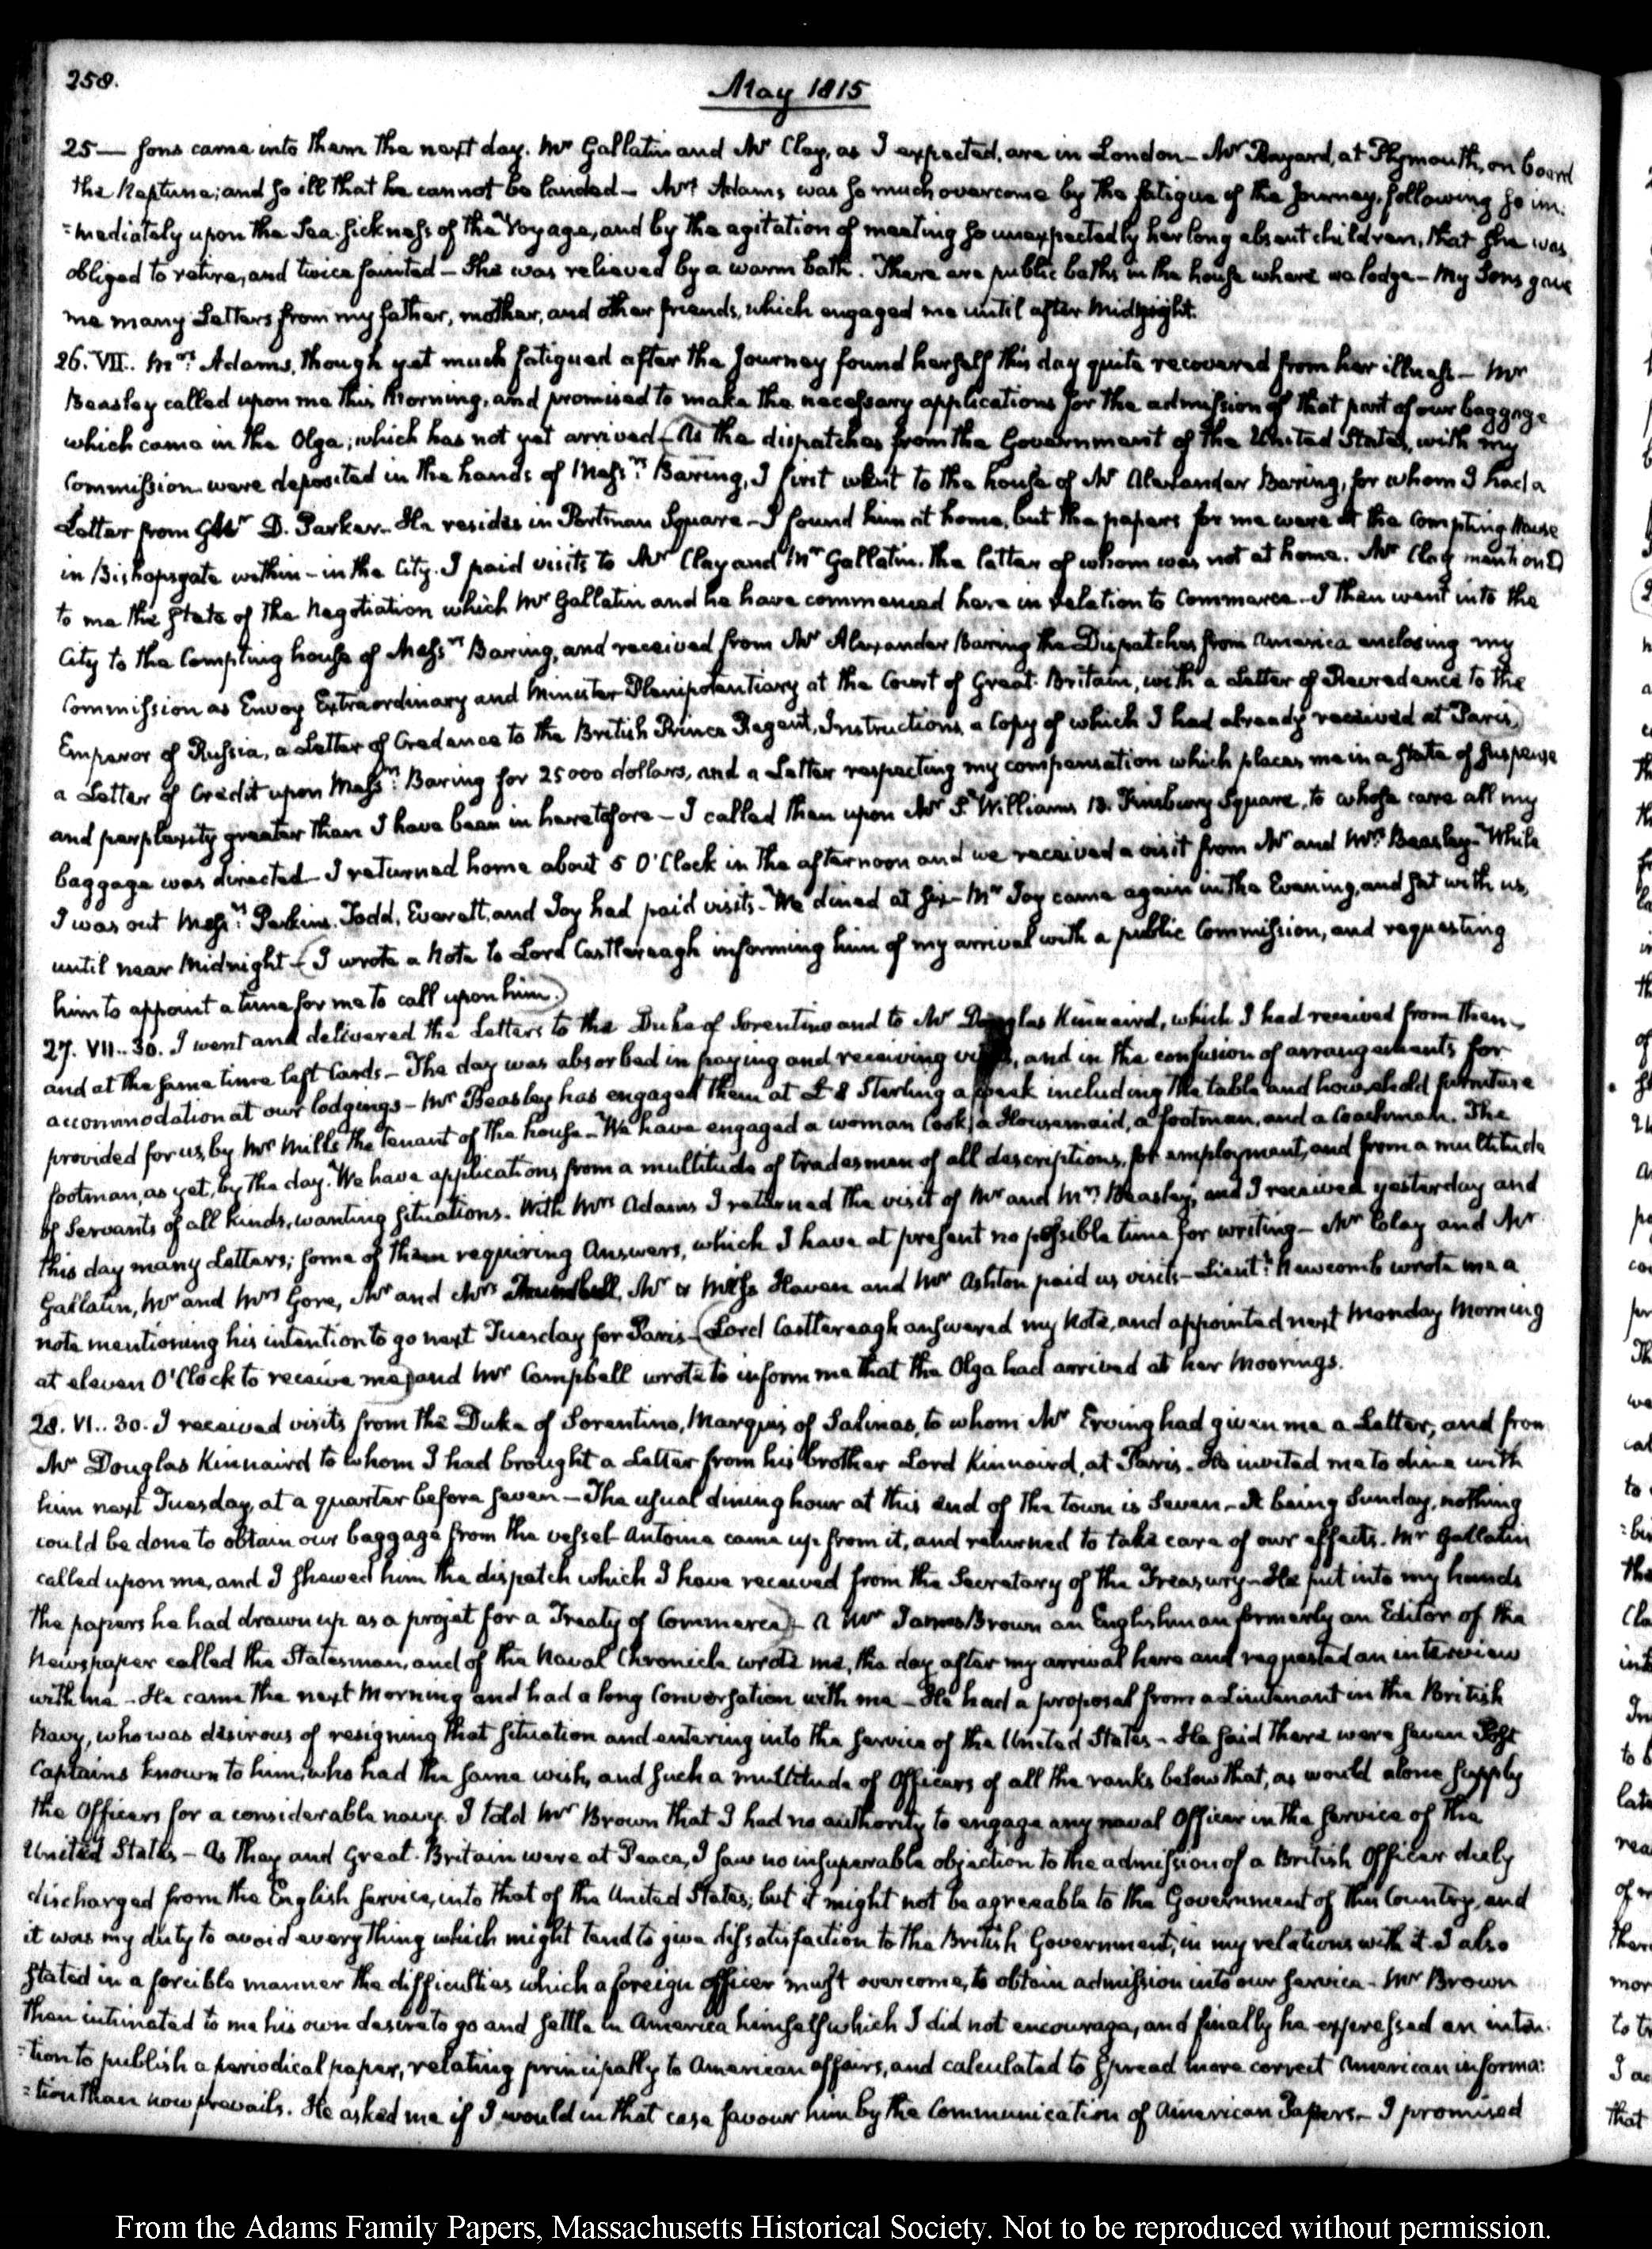 258.
May 1815
25— sons came into them the next day. Mr Gallatin and Mr Clay, as I expected, are in London— Mr Bayard, at Plymouth, on board
the Neptune; and so ill that he cannot be landed— Mrs Adams was so much overcome by the fatigue of the Journey, following so im=
=mediately upon the Sea-sickness of the Voyage, and by the agitation of meeting so unexpectedly her long absent children, that she was
obliged to retire, and twice fainted— She was relieved by a warm bath. There are public baths in the house where we lodge— My Sons gave
me many Letters from my father, mother, and other friends, which engaged me until after Midnight.
26. VII.. Mrs: Adams, though yet much fatigued after the Journey found herself this day quite recovered from her illness— Mr
Beasley called upon me this Morning, and promised to make the necessary applications for the admission of that part of our baggage
which came in the Olga; which has not yet arrived— (As the dispatches from the Government of the United States, with my
Commission were deposited in the hands of Messrs: Baring, I first went to the house of Mr Alexander Baring, for whom I had a
Letter from Mr D. Parker— He resides in Portman Square— I found him at home, but the papers for me were at the Compting House
in Bishopsgate within— in the City. I paid visits to Mr Clay and Mr Gallatin. The latter of whom was not at home. Mr Clay mentioned
to me the state of the Negotiation which Mr Gallatin and he have commenced here in relation to Commerce— I then went into the
City to the Compting house of Messrs Baring, and received from Mr Alexander Baring the Dispatches from America enclosing my
Commission as Envoy Extraordinary and Minister Plenipotentiary at the Court of Great-Britain, with a Letter of Recredence to the
Emperor of Russia, a Letter of Credence to the British Prince Regent, Instructions, a Copy of which I had already received at Paris,)
a Letter of Credit upon Messrs: Baring for 25000 dollars, and a Letter respecting my compensation which places me in a state of suspense
and perplexity greater than I have been in heretofore— I called then upon Mr S. Williams 13. Finsbury Square, to whose care all my
baggage was directed— I returned home about 5 O'Clock in the afternoon and we received a visit from Mr and Mrs: Beasley— While
I was out Messrs: Perkins, Todd, Everett, and Joy had paid visits— We dined at six— Mr Joy came again in the Evening, and sat with us,
until near Midnight— (I wrote a Note to Lord Castlereagh informing him of my arrival with a public Commission, and requesting
him to appoint a time for me to call upon him.)
27. VII..30. I went and delivered the Letters to the Duke of Sorentino and to Mr Douglas Kinnaird, which I had received from them,
and at the same time left Cards— The day was absorbed in paying and receiving visits, and in the confusion of arrangements for
accommodation at our lodgings— Mr Beasley has engaged them at £8 Sterling a week including the table and household furniture
provided for us, by Mr Mills the tenant of the house— We have engaged a woman Cook, a Housemaid, a footman, and a Coachman. The
footman, as yet, by the day. We have applications from a multitude of tradesmen of all descriptions, for employment, and from a multitude
of Servants of all kinds, wanting situations. With Mrs Adams I returned the visit of Mr and Mrs: Beasley, and I received yesterday and
this day many Letters; some of them requiring Answers, which I have at present no possible time for writing— Mr Clay and Mr
Gallatin, Mr and Mrs Gore, Mr and Mrs Trumbull, Mr & Miss Haven and Mr Ashton paid us visits— Lieutt: Newcomb wrote me a
note mentioning his intention to go next Tuesday for Paris— (Lord Castlereagh answered my Note, and appointed next Monday Morning
at eleven O'Clock to receive me) and Mr Campbell wrote to inform me that the Olga had arrived at her Moorings.
28. VI..30. I received visits from the Duke of Sorentino, Marquis of Salinas, to whom Mr Erving had given me a Letter, and from
Mr Douglas Kinnaird to whom I had brought a Letter from his brother Lord Kinnaird, at Paris. He invited me to dine with
him next Tuesday, at a quarter before seven— The usual dining hour at this end of the town is Seven— It being Sunday, nothing
could be done to obtain our baggage from the vessel— Antoine came up from it, and returned to take care of our effects. Mr Gallatin
called upon me, and I shewed him the dispatch which I have received from the Secretary of the Treasury— He put into my hands
the papers he had drawn up as a projet for a Treaty of Commerce)— A Mr James Brown an Englishman formerly an Editor of the
Newspaper called the Statesman, and of the Naval Chronicle wrote me, the day after my arrival here and requested an interview
with me— He came the next Morning and had a long Conversation with me— He had a proposal from a Lieutenant in the British
Navy, who was desirous of resigning that situation and entering into the service of the United States— He said there were seven Post
Captains known to him, who had the same wish, and such a multitude of Officers of all the ranks below that, as would alone supply
the Officers for a considerable navy. I told Mr Brown that I had no authority to engage any naval Officer in the service of the
United States— As they and Great-Britain were at Peace, I saw no insuperable objection to the admission of a British Officer duly
discharged from the English service, into that of the United States; but it might not be agreeable to the Government of this Country, and
it was my duty to avoid every thing which might tend to give dissatisfaction to the British Government, in my relations with it. I also
stated in a forcible manner the difficulties which a foreign officer must overcome, to obtain admission into our service— Mr Brown
then intimated to me his own desire to go and settle in America himself which I did not encourage, and finally he expressed an inten=
=tion to publish a periodical paper, relating principally to American affairs, and calculated to spread more correct American informa=
=tion than now prevails. He asked me if I would in that case favour him by the Communication of American Papers— I promised
From the Adams Family Papers, Massachusetts Historical Society. Not to be reproduced without permission.